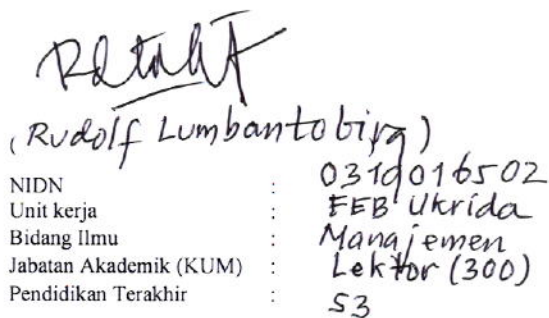 (Rudolf Lumbantobing)
NIDN : 0310016502
Unit kerja : FEB Ukrida
Bidang Ilmu : Manajemen
Jabatan Akademik (KUM) : Lektor (300)
Pendidikan Terakhir : S3